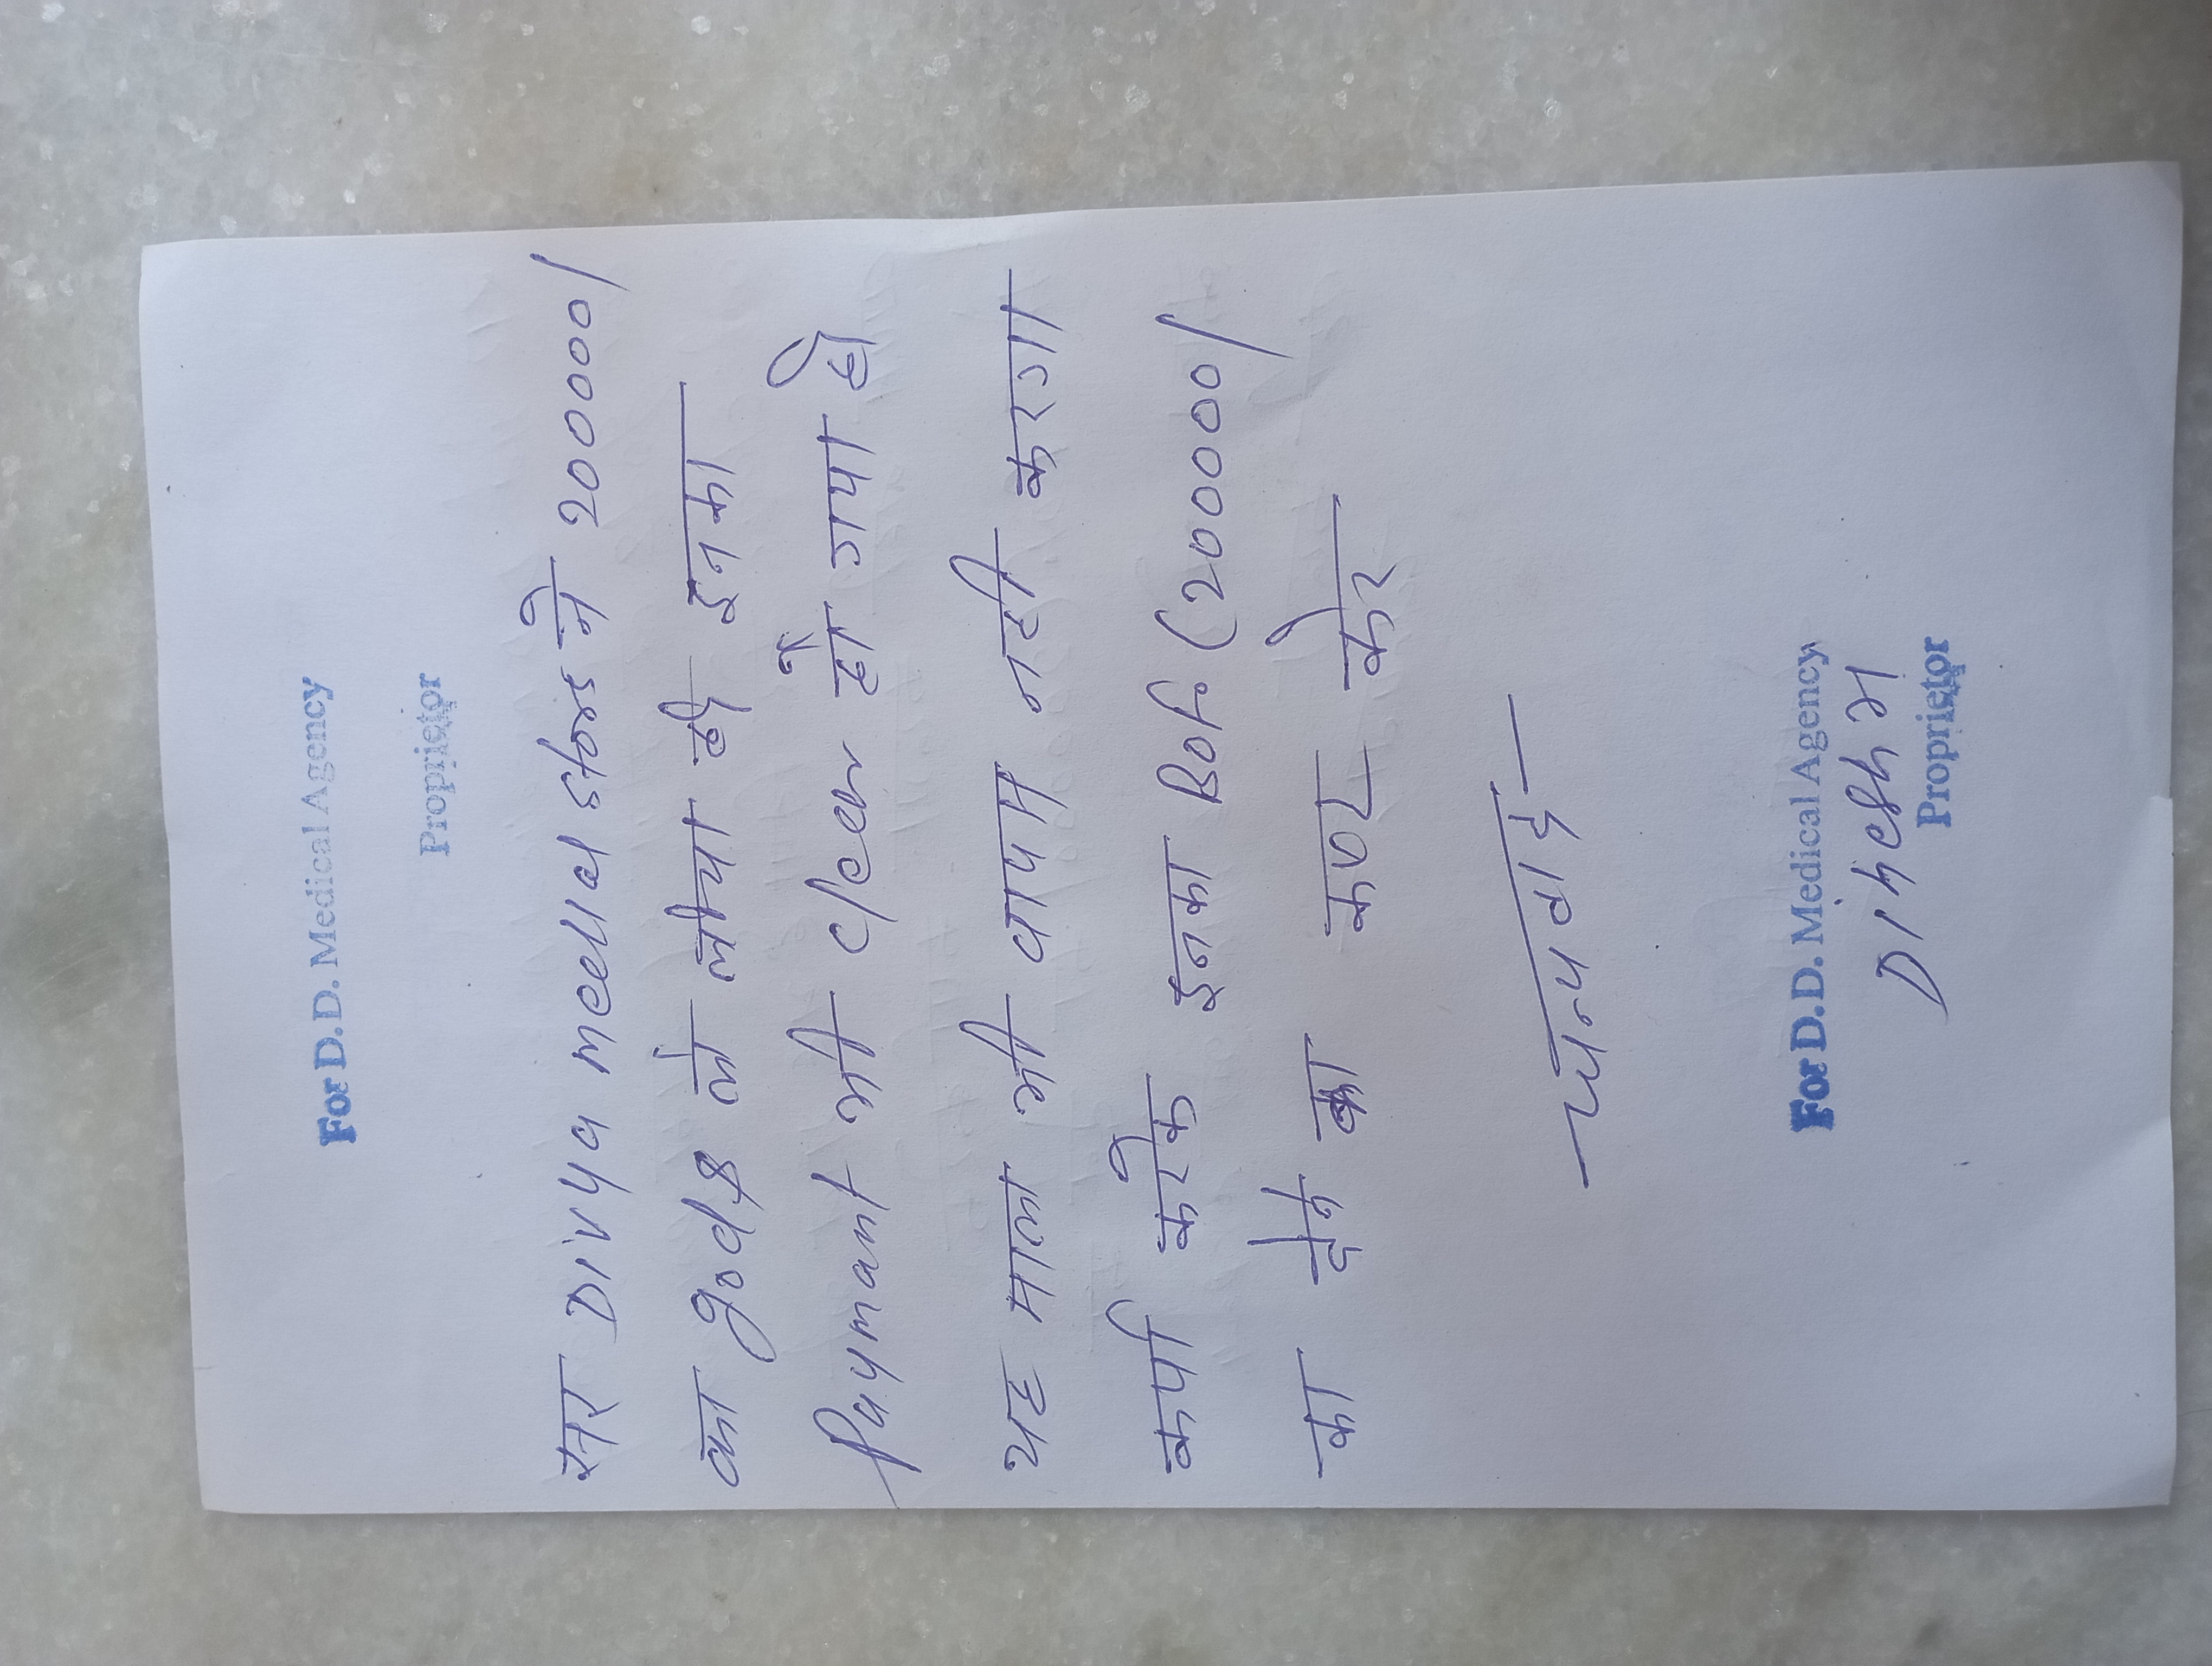 For D.D. Medical Agency
Proprietor
सर Divya medical store ने 200000/
का gods ले लीया है इनका
Paymant भी clear हो गया है
यह माल भी वापस नही करगा
कर्पा करके इनका (200000/
का का कष्ट करे
धन्यवाद
For D.D. Medical Agency
Dinesh
Proprietor